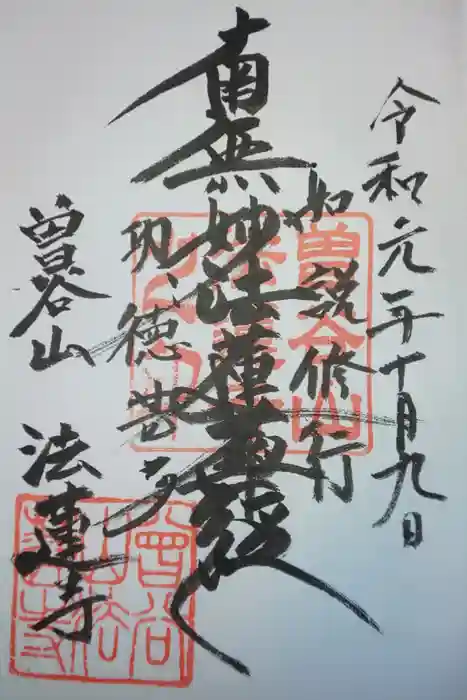 令和元年十月九日
如説修行
南無妙法蓮華経
功徳甚多
曽谷山
法蓮寺